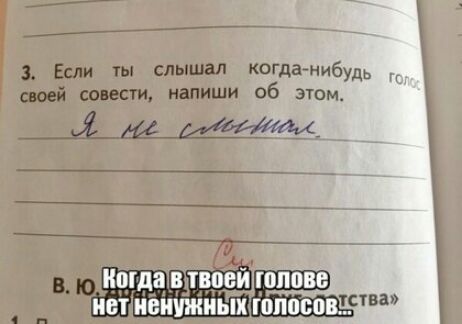 3. Если ты слышал когда-нибудь голос
своей совести, напиши об этом.
Я не слышал.
См
В. Ю.
Когда в твоей голове
нет ненужных голосов...
тства»
1.